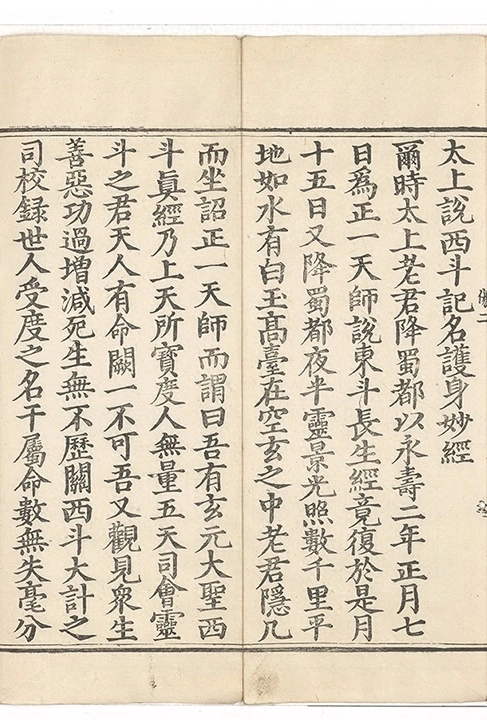 太上說西斗記名護身妙經
爾時太上老君降蜀都以永壽二年正月七
日為正一天師說東斗長生經竟復於是月
十五日又降蜀都夜半靈景光照數千里平
地如水有白玉高臺在空玄之中老君隱几
而坐詔正一天師而謂曰吾有玄元大聖西
斗眞經乃上天所寶度人無量五天司會靈
斗之君天人有命闕一不可吾又觀見衆生
善惡功過增減死生無不歷關西斗大計之
司校録世人受度之名干屬命數無失毫分